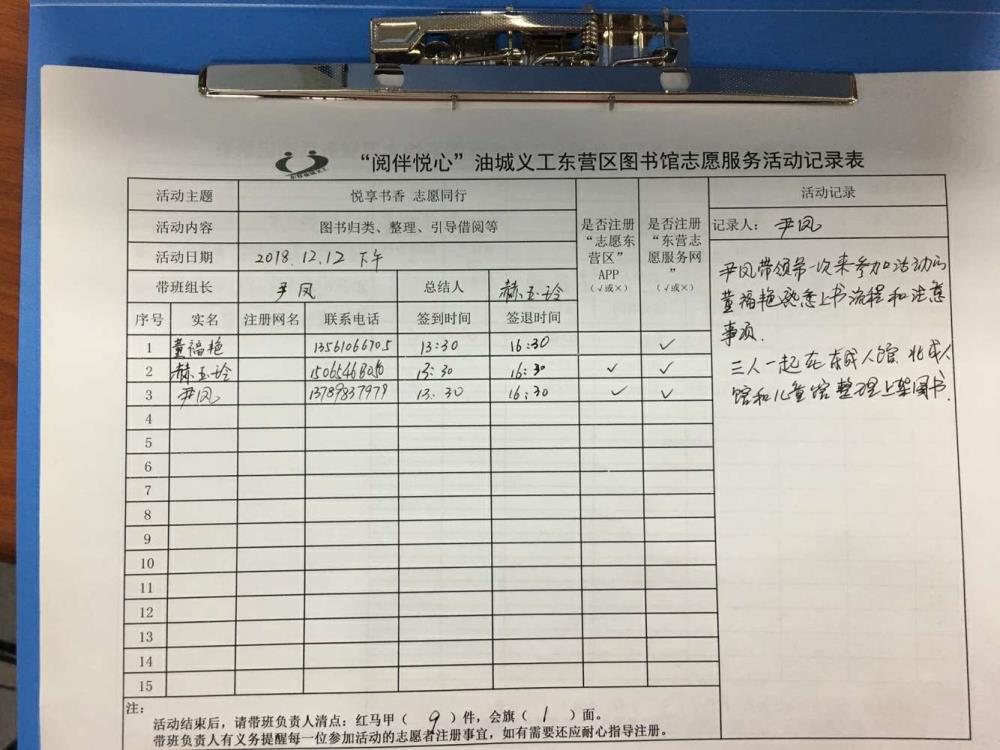 “阅伴悦心”油城义工东营区图书馆志愿服务活动记录表
活动主题 悦享书香 志愿同行 是否注册“志愿东营区”APP（√或×） 是否注册“东营志愿服务网”（√或×） 活动记录
活动内容 图书归类、整理、引导借阅等
记录人：尹凤
活动日期 2018.12.12 下午
带班组长 尹凤 总结人 赫玉玲
序号 实名 注册网名 联系电话 签到时间 签退时间
1 董福艳 13561066705 13:30 16:30 ✓
2 赫玉玲 15065468050 13:30 16:30 ✓ ✓
3 尹凤 13789837979 13:30 16:30 ✓ ✓
4
5
6
7
8
9
10
11
12
13
14
15
尹凤带领第一次来参加活动的
董福艳熟悉上书流程和注意
事项.
三人一起在东成人馆、北成人
馆和儿童馆整理上架图书.
注:
活动结束后，请带班负责人清点：红马甲（ 9 ）件，会旗（ 1 ）面。
带班负责人有义务提醒每一位参加活动的志愿者注册事宜，如有需要还应耐心指导注册。